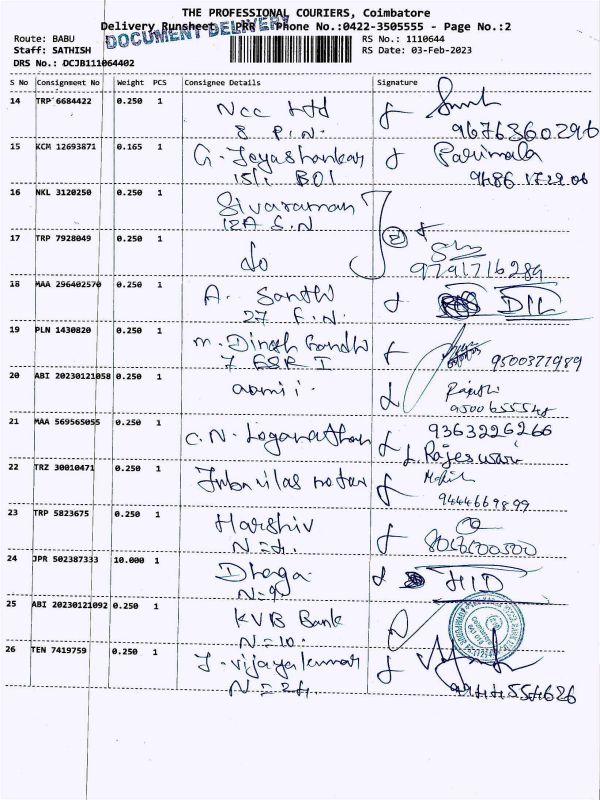 THE PROFESSIONAL COURIERS, Coimbatore
Delivery Runsheet - PRR - Phone No.:0422-3505555 - Page No.:2
DOCUMENT DELIVERY
Route: BABU
RS No.: 1110644
Staff: SATHISH
RS Date: 03-Feb-2023
DRS No.: DCJB111064402
S No Consignment No Weight PCS Consignee Details Signature
14 TRP 6684422 0.250 1 Ncc Ltd
8 P.N. 9676360296
15 KCM 12693871 0.165 1 G. Jeyashankar Parimala
15/1 BOI
16 NKL 3120250 0.250 1 Sivaraman
12A S.N
17 TRP 7928049 0.250 1 do
9791716289
18 MAA 296402570 0.250 1 A. Santhi DIL
27 F.N.
19 PLN 1430820 0.250 1 M. Dinesh Gandhi
7 ESR I 9500377989
20 ABI 20230121058 0.250 1
21 MAA 569565055 0.250 1 C.N. Loganathan 9363226266
Rajeswari
22 TRZ 30010471 0.250 1
9444669899
23 TRP 5823675 0.250 1 Harshiv
24 JPR 502387333 10.000 1 Dhaga HID
N=9
25 ABI 20230121092 0.250 1 KVB Bank
N=10.
26 TEN 7419759 0.250 1 J. Vijayakumar
N=24. 9944554626